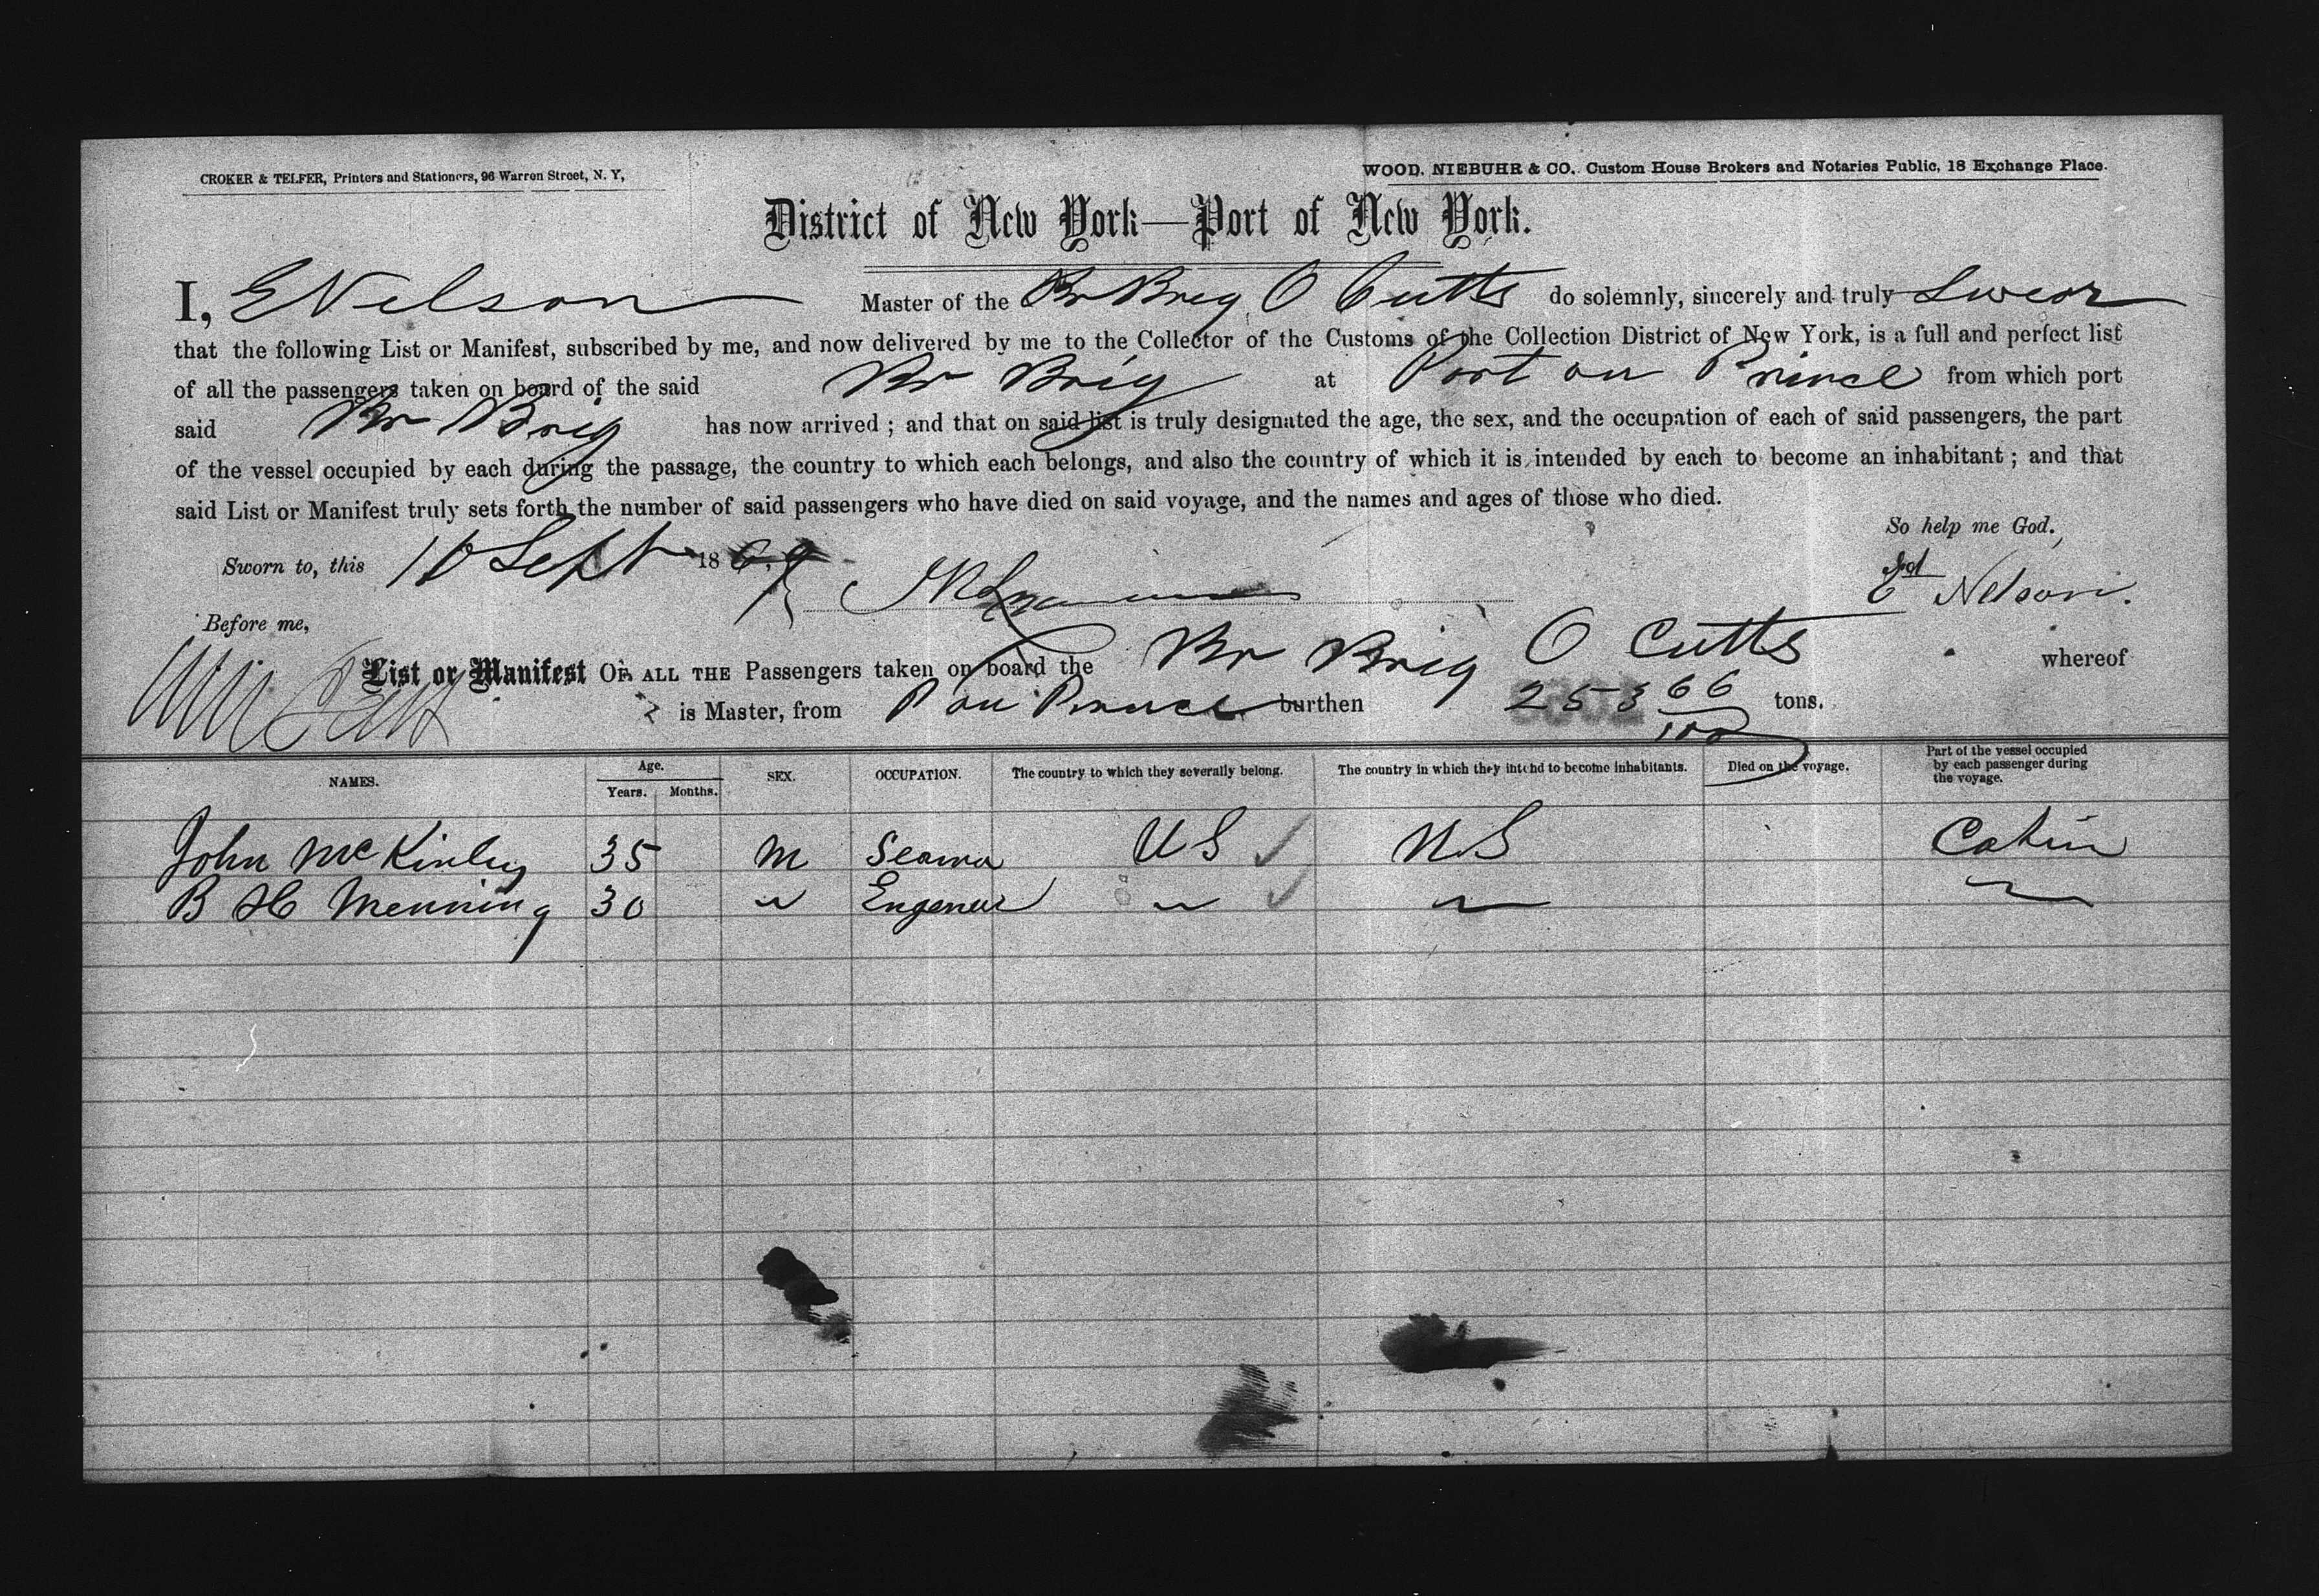 CROKER & TELFER, Printers and Stationers, 96 Warren Street, N. Y,
WOOD, NIEBUHR & CO., Custom House Brokers and Notaries Public, 18 Exchange Place.
District of New York—Port of New York.
I, E Nelson Master of the Br Brig O Cutts do solemnly, sincerely and truly Swear
that the following List or Manifest, subscribed by me, and now delivered by me to the Collector of the Customs of the Collection District of New York, is a full and perfect list
of all the passengers taken on board of the said Br Brig at Port au Prince from which port
said Br Brig has now arrived ; and that on said list is truly designated the age, the sex, and the occupation of each of said passengers, the part
of the vessel occupied by each during the passage, the country to which each belongs, and also the country of which it is intended by each to become an inhabitant ; and that
said List or Manifest truly sets forth the number of said passengers who have died on said voyage, and the names and ages of those who died.
So help me God.
Sworn to, this 10 Sept 1869
Ed Nelson.
Before me,
List or Manifest OF ALL THE Passengers taken on board the Br Brig O Cutts whereof
is Master, from P au Prince burthen 253 66/100 tons.
NAMES. Age. Years. Months. SEX. OCCUPATION. The country to which they severally belong. The country in which they intend to become inhabitants. Died on the voyage. Part of the vessel occupied by each passenger during the voyage.
John McKinley 35 M Seama US ✓ U.S Cabin
B H Menning 30 " Engeneer " ✓ " "